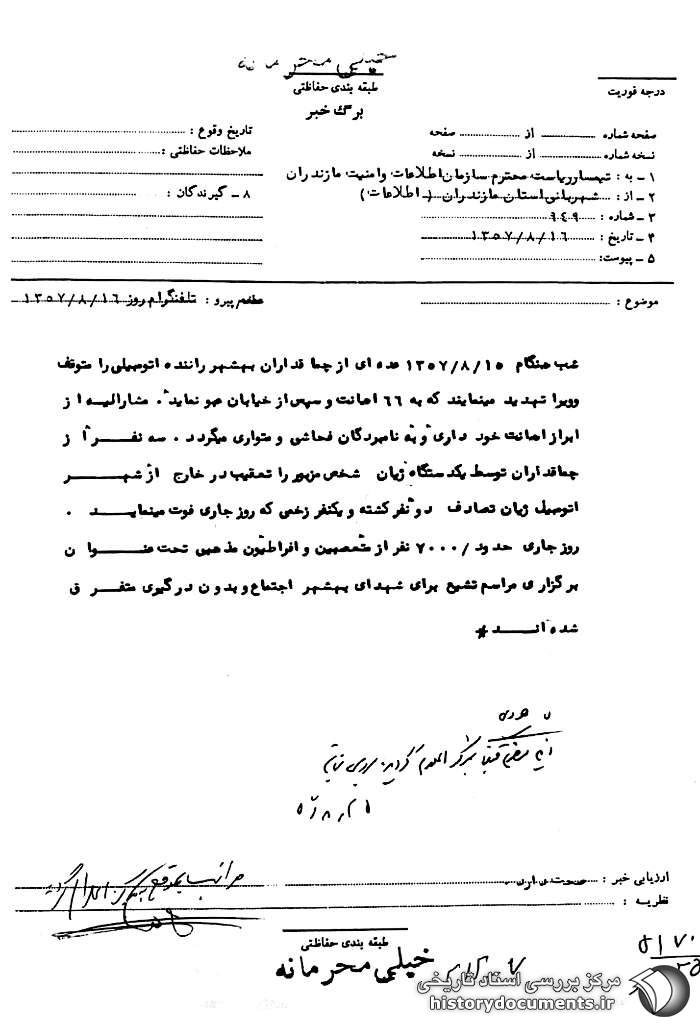 خیلی محرمانه
طبقه بندی حفاظتی
برگ خبر
درجه فوریت
صفحه شماره از صفحه
نسخه شماره از نسخه
۱ - به : تیمسار ریاست محترم سازمان اطلاعات وامنیت مازندران
۲ - از : شهربانی استان مازندران ( اطلاعات )
۳ - شماره : ۹۴۹
۴ - تاریخ : ۱۳۵۷/۸/۱۶
۵ - پیوست:
تاریخ وقوع :
ملاحظات حفاظتی :
۸ - گیرندگان :
موضوع :
پیرو : تلفنگرام روز ۱۳۵۷/۸/۱۶
شب هنگام ۱۳۵۷/۸/۱۵ عده ای از چماقداران بهشهر راننده اتومبیلی را متوقف
وویرا تهدید مینمایند که به ۶۶ اهانت و سپس از خیابان عبو نماید . مشارالیه از
ابراز اهانت خود داری و به نامبردگان فحاشی و متواری میگردد . سه نفر از
چماقداران توسط یکدستگاه ژیان شخص مزبور را تعقیب در خارج از شهر
اتومبیل ژیان تصادف دو نفر کشته و یکنفر زخمی که روز جاری فوت مینماید .
روز جاری حدود /۷۰۰۰ نفر از متعصبین و افراطیون مذهبی تحت عنوان
برگزاری مراسم تشیع برای شهدای بهشهر اجتماع و بدون درگیری متفرق
شده اند *
ارزیابی خبر : صحت دارد
نظریه :
طبقه بندی حفاظتی
خیلی محرمانه
مرکز بررسی اسناد تاریخی
historydocuments.ir